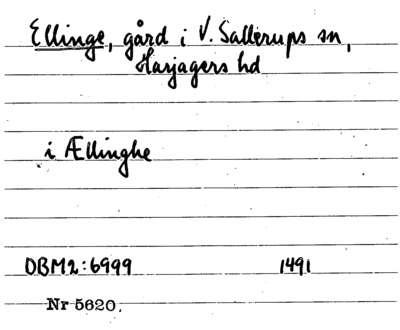 Ellinge, gård i V. Sallerups sn,
Harjagers hd
i Ællinghe
DBM2:6999 1491
Nr 5620.